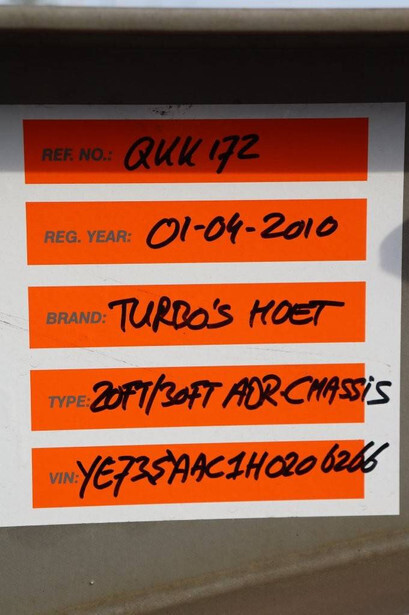 REF. NO.: QKK 172
REG. YEAR: 01-04-2010
BRAND: TURBO'S HOET
TYPE: 20FT/30FT ADR-CHASSIS
VIN: YE735AAC1H0206266